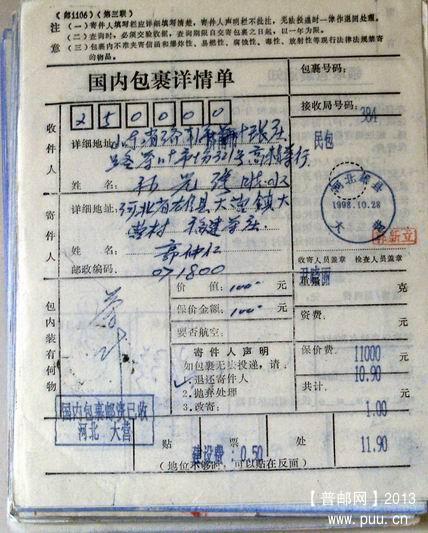 (邮1106)(第三联)
注意
(一)寄件人填写栏应详细填写清楚。寄件人声明栏不批注,无法投递时一律作退回处理。
(二)查询时,必须交验收据。查询期限自交寄包裹之日起,以一年为限。
(三)包裹内不准夹寄信函和爆炸性、易燃性、腐蚀性、毒性、放射性等现行法律法规禁寄的物品。
国内包裹详情单
包裹号码:
394
接收局号码:
民包
250000
收件人
详细地址:
姓名:
寄件人
详细地址:河北省雄县大营镇大
营村
姓名:
邮政编码:
071800
河北雄县
1998.10.28
大营
郭新立
收寄人员盖章
检查人员盖章
包内装有何物
药
价值:100元
保价金额:100元
要否航空:
重量: 克
资费: 元
保价费: 11000 元
10.90
共计: 元
1.00
11.90
寄件人声明
如包裹无法投递,请:
1.退还寄件人
2.抛弃处理
3.改寄:
国内包裹邮资已收
河北 大营
贴票处
建设费:0.50
(地位不够时,可以贴在反面)
【普邮网】2013
www.puu.cn